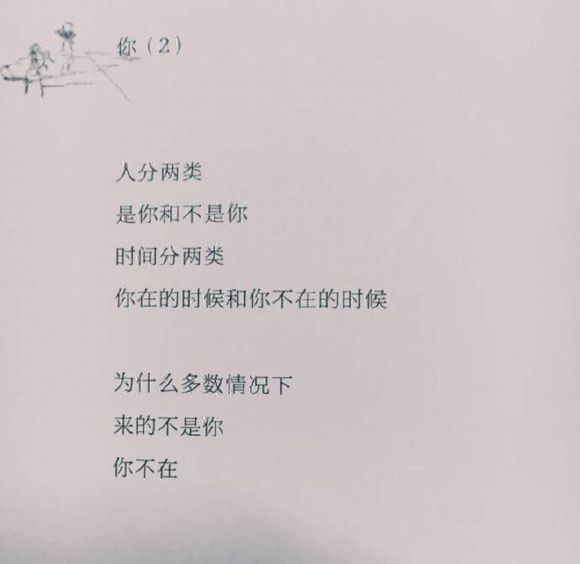 你（2）
人分两类
是你和不是你
时间分两类
你在的时候和你不在的时候
为什么多数情况下
来的不是你
你不在